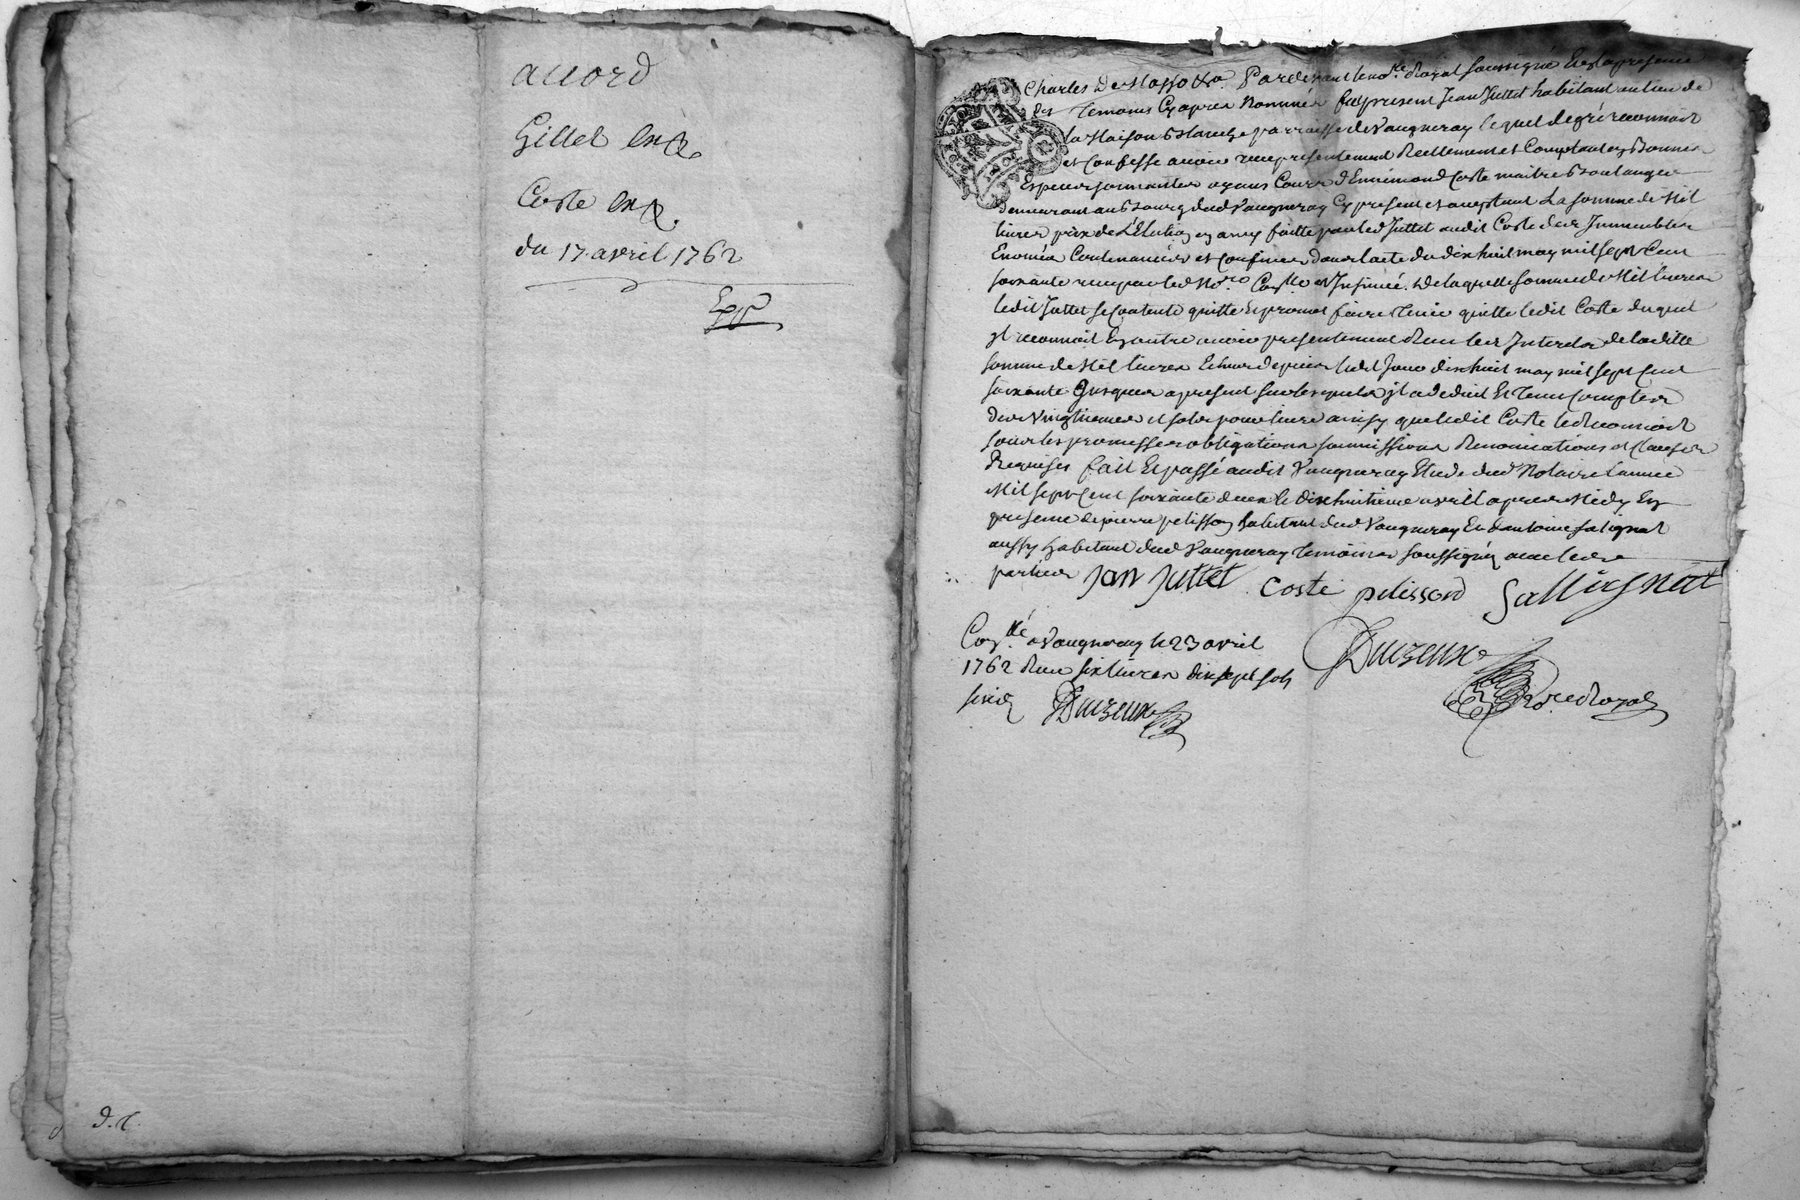 accord
Gillet
Coste
du 17 avril 1762
Exp
Pardevant le no.re Royal soussigné Et En la presence
des Temoins Cy apres Nommés fut present Jean Juttet habitant au lieu de
la Maison Blanche parroisse de Vaugneray lequel de gré reconnoit
et Confesse avoir reçu presentement Reellement et Comptant en Bonnes
Especes sonnantes ayans Cours d'Ennemond Coste maitre Boulanger
demeurant au Bourg dud Vaugneray Cy present et aceptant La somme de Mil
livres prix de L'Election en amy faitte par led Juttet audit Coste des Immeubles
Enoncés Contenancés et Confinés dans l'acte du dixhuit may mil sept Cent
soixante reçu par led No.re Con.llé et Insinué. De laquelle somme de Mil livres
ledit Juttet se Contente quitte Et promet faire Tenir quitte ledit Coste duquel
jl reconnoit En outre avoir presentement Reçu les Interets de laditte
somme de Mil livres Echus depuis ledit Jour dixhuit may mil sept Cent
soixante Jusques a present sur lesquels jl a deduit Et Tenu Compte des
deux Vingtiemes et sols pour livre ainsy que ledit Coste le Reconnoit
sous les promesses obligations soumissions Renonciations et Clauses
Requises fait Et passé audit Vaugneray Etude dud Notaire L'année
Mil sept Cent soixante deux le dixhuitieme avril apres Midy En
presence de pierre pelisson habitant dud Vaugneray Et d'antoine Salignat
aussy habitant dud Vaugneray Temoins soussignés avec les
parties Jan Juttet Coste pelisson Sallignat
Con.llé a Vaugneray le 23 avril
1762 Reçu six livres dix sept sols
six d
No.re Royal